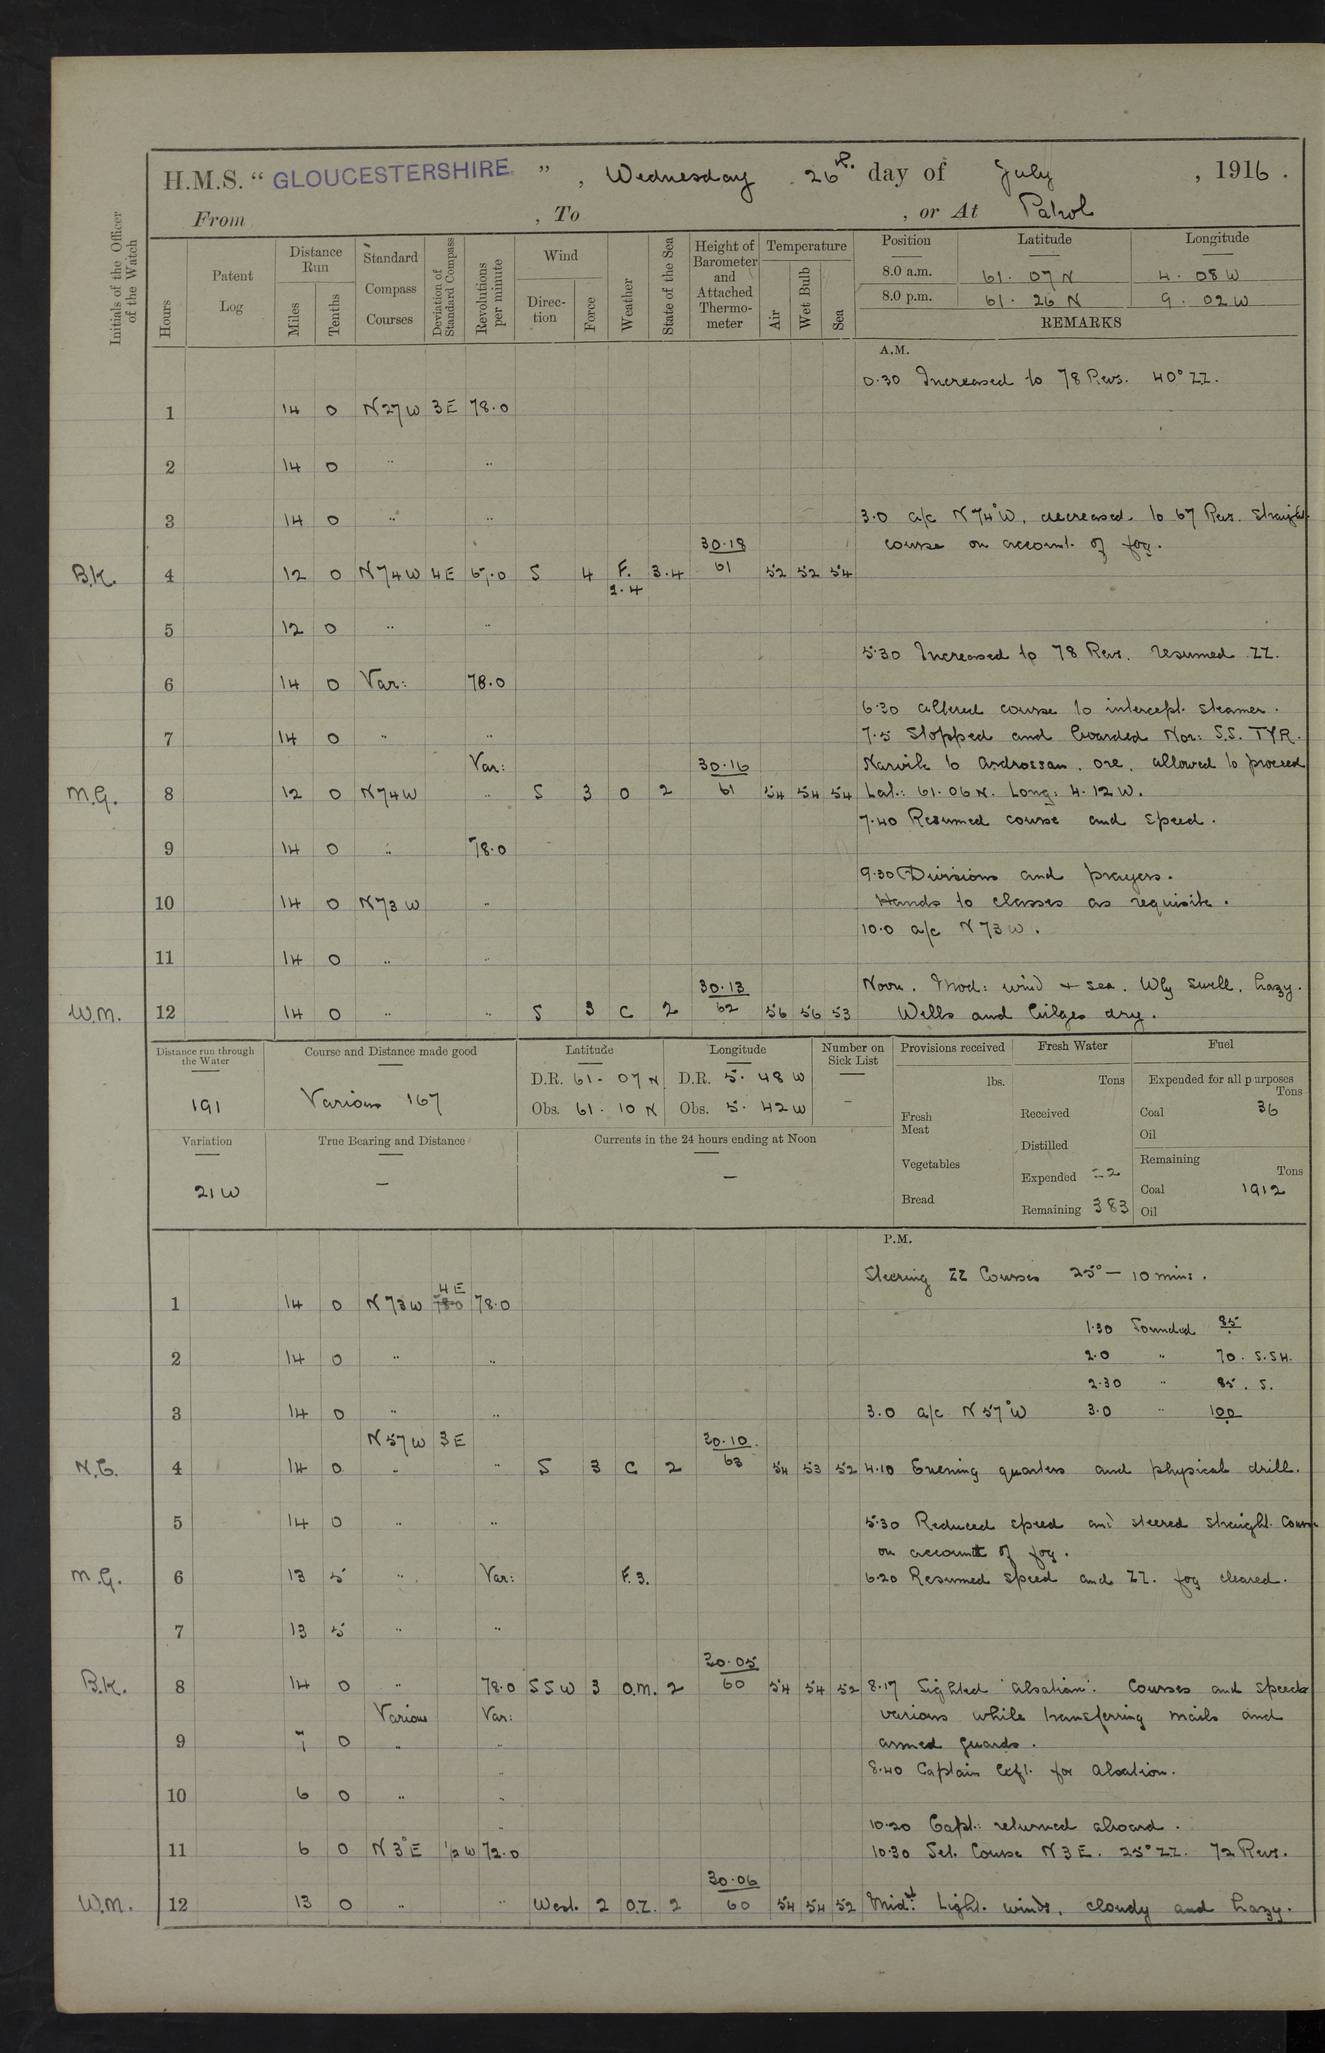 H.M.S. " GLOUCESTERSHIRE. " , Wednesday 26th. day of July , 1916 .
From , To , or At Patrol
Initials of the Officer of the Watch
Hours
Patent Log
Distance Run
Miles
Tenths
Standard Compass Courses
Deviation of Standard Compass
Revolutions per minute
Wind
Direction
Force
Weather
State of the Sea
Height of Barometer and Attached Thermometer
Temperature
Air
Wet Bulb
Sea
Position Latitude Longitude
8.0 a.m. 61. 07 N 4. 08 W
8.0 p.m. 61. 26 N 9. 02 W
REMARKS
A.M.
0.30 Increased to 78 Revs. 40° ZZ.
1 14 0 N 27 W 3E 78.0
2 14 0 " "
3 14 0 " " 3.0 a/c N 74° W, decreased to 67 Revs. Straight
30.18 course on account of fog.
B.K. 4 12 0 N 74 W 4E 67.0 S 4 F. 3.4 61 52 52 54
2.4
5 12 0 " "
5.30 Increased to 78 Revs. resumed ZZ.
6 14 0 Var: 78.0
6.30 altered course to intercept steamer.
7 14 0 " " 7.5 Stopped and boarded Nor: S.S. TYR.
Var: 30.16 Narvik to Androssan, ore, allowed to proceed
M.G. 8 12 0 N 74 W " S 3 0 2 61 54 54 54 Lat: 61.06 N. Long: 4.12 W.
7.40 Resumed course and speed.
9 14 0 " 78.0
9.30 Divisions and prayers.
10 14 0 N 73 W " Hands to classes as requisite.
10.0 a/c N 73 W.
11 14 0 " "
30.13 Noon. Mod: wind + sea. Wly swell, hazy.
W.M. 12 14 0 " " S 3 C 2 62 56 56 53 Wells and bilges dry.
Distance run through the Water
191
Course and Distance made good
Various 167
Latitude
D.R. 61. 07 N
Obs. 61. 10 N
Longitude
D.R. 5. 48 W
Obs. 5. 42 W
Number on Sick List
—
Variation
21 W
True Bearing and Distance
—
Currents in the 24 hours ending at Noon
—
Provisions received
lbs.
Fresh Meat
Vegetables
Bread
Fresh Water
Tons
Received
Distilled
Expended 22
Remaining 383
Fuel
Expended for all purposes
Tons
Coal 36
Oil
Remaining
Tons
Coal 1912
Oil
P.M.
Steering ZZ Courses 25° — 10 mins.
4E
1 14 0 N 73 W 78.0 78.0
1.30 Sounded 85
2 14 0 " " 2.0 " 70. S.SH.
2.30 " 85. S.
3 14 0 " " 3.0 a/c N 57° W 3.0 " 100
N 57 W 3E 30.10
4 14 0 " " S 3 C 2 63 54 53 52 4.10 Evening quarters and physical drill.
5 14 0 " " 5.30 Reduced speed and steered straight course
on account of fog.
M.G. 6 13 5 " Var: F. 3. 6.20 Resumed speed and ZZ. fog cleared.
7 13 5 " "
30.05
B.K. 8 14 0 " 78.0 SSW 3 O.M. 2 60 54 54 52 8.17 Sighted "Alsatian". Courses and speeds
Various Var: various while transferring mails and
9 7 0 " " armed guards.
8.40 Captain left for Alsatian.
10 6 0 " "
10.20 Capt: returned aboard.
11 6 0 N 3° E ½ W 72.0 10.30 Set Course N 3 E. 25° ZZ. 72 Revs.
30.06
W.M. 12 13 0 " " West. 2 O.Z. 2 60 54 54 52 Midt: Light winds, cloudy and hazy.